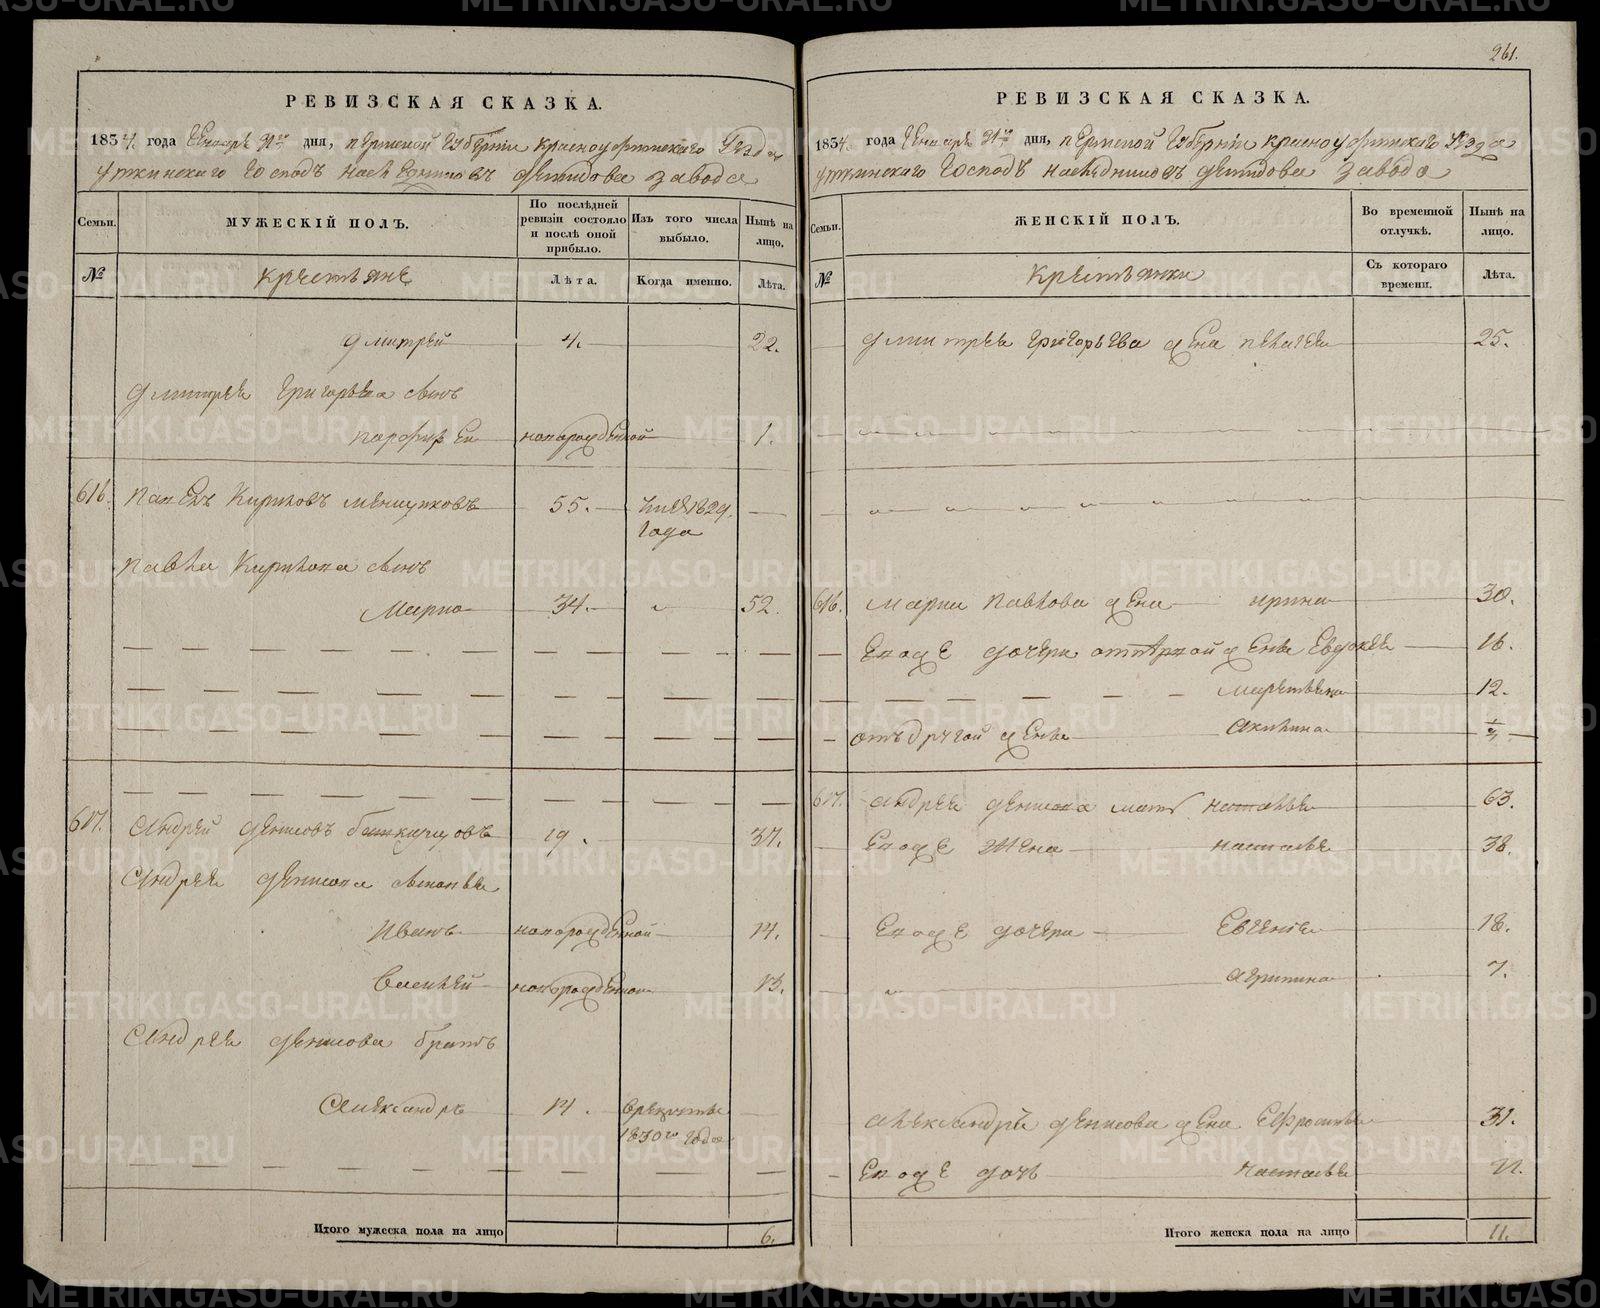 261.
РЕВИЗСКАЯ СКАЗКА.
1834 года Генваря 31го дня, Пермской Губернии Красноуфимского Уезда
Уткинскаго Господъ Наследниковъ Демидова завода
Семьи.
МУЖЕСКІЙ ПОЛЪ.
По послѣдней ревизіи состояло и послѣ оной прибыло.
Изъ того числа выбыло.
Нынѣ на лицо.
№
Крестьяне
Лѣта.
Когда именно.
Лѣта.
Дмитрей 4. 22.
Дмитрея Григорьева сынъ
Парфирей новорожденной 1.
616. Павелъ Карповъ 55. 1829. года
Павла Карпова сынъ
Марко 34. 52.
617. Андрей Денисовъ Башкирцовъ 19. 37.
Андрея Денисова сыновья
Иванъ новорожденной 14.
Василей новорожденной 13.
Андрея Денисова братъ
Александръ 14. в рекруты 1830го года
Итого мужеска пола на лицо 6.
РЕВИЗСКАЯ СКАЗКА.
1834. года Генваря 31го дня, Пермской Губернии Красноуфимскаго Уезда
Уткинскаго Господъ Наследниковъ Демидова завода
Семьи.
ЖЕНСКІЙ ПОЛЪ.
Во временной отлучкѣ.
Нынѣ на лицо.
№
Крестьянки
Съ котораго времени.
Лѣта.
Дмитрея Григорьева жена Пелагея 25.
616. Марка Павлова жена Ирина 30.
Ево же дочери от первой жены Евдокея 16.
Маремьяна 12.
отъ другой жены Акилина
617. Андрея Денисова мать Наталья 63.
Ево же жена Настасья 38.
Ево же дочери Евгенья 18.
Агрипина 7.
Александра Денисова жена Ефросинья 31.
Ево же дочь Настасья 11.
Итого женска пола на лицо 11.
METRIKI.GASO-URAL.RU